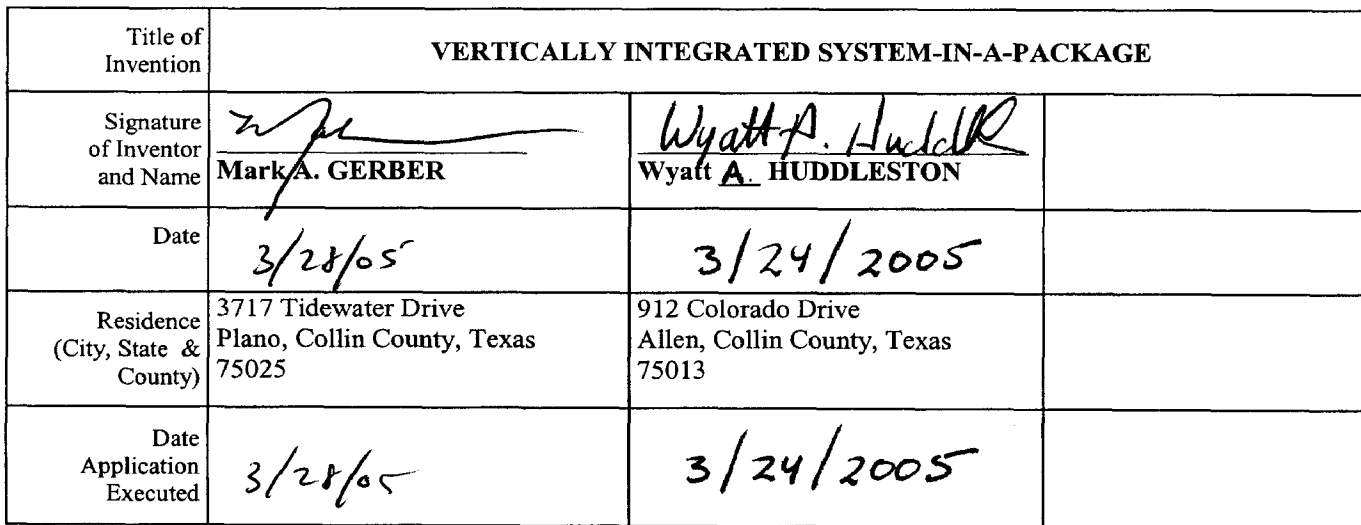 Title of
Invention
VERTICALLY INTEGRATED SYSTEM-IN-A-PACKAGE
Signature
of Inventor
and Name
Mark A. GERBER
Wyatt A. Huddl
Wyatt A. HUDDLESTON
Date
3/28/05
3/24/2005
Residence
(City, State &
County)
3717 Tidewater Drive
Plano, Collin County, Texas
75025
912 Colorado Drive
Allen, Collin County, Texas
75013
Date
Application
Executed
3/28/05
3/24/2005